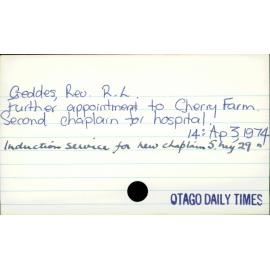 Geddes, Rev. R.L.
Further appointment to Cherry Farm.
Second chaplain for hospital.
14: Ap 3, 1974
Induction service for new chaplain 5: My 29 "
OTAGO DAILY TIMES